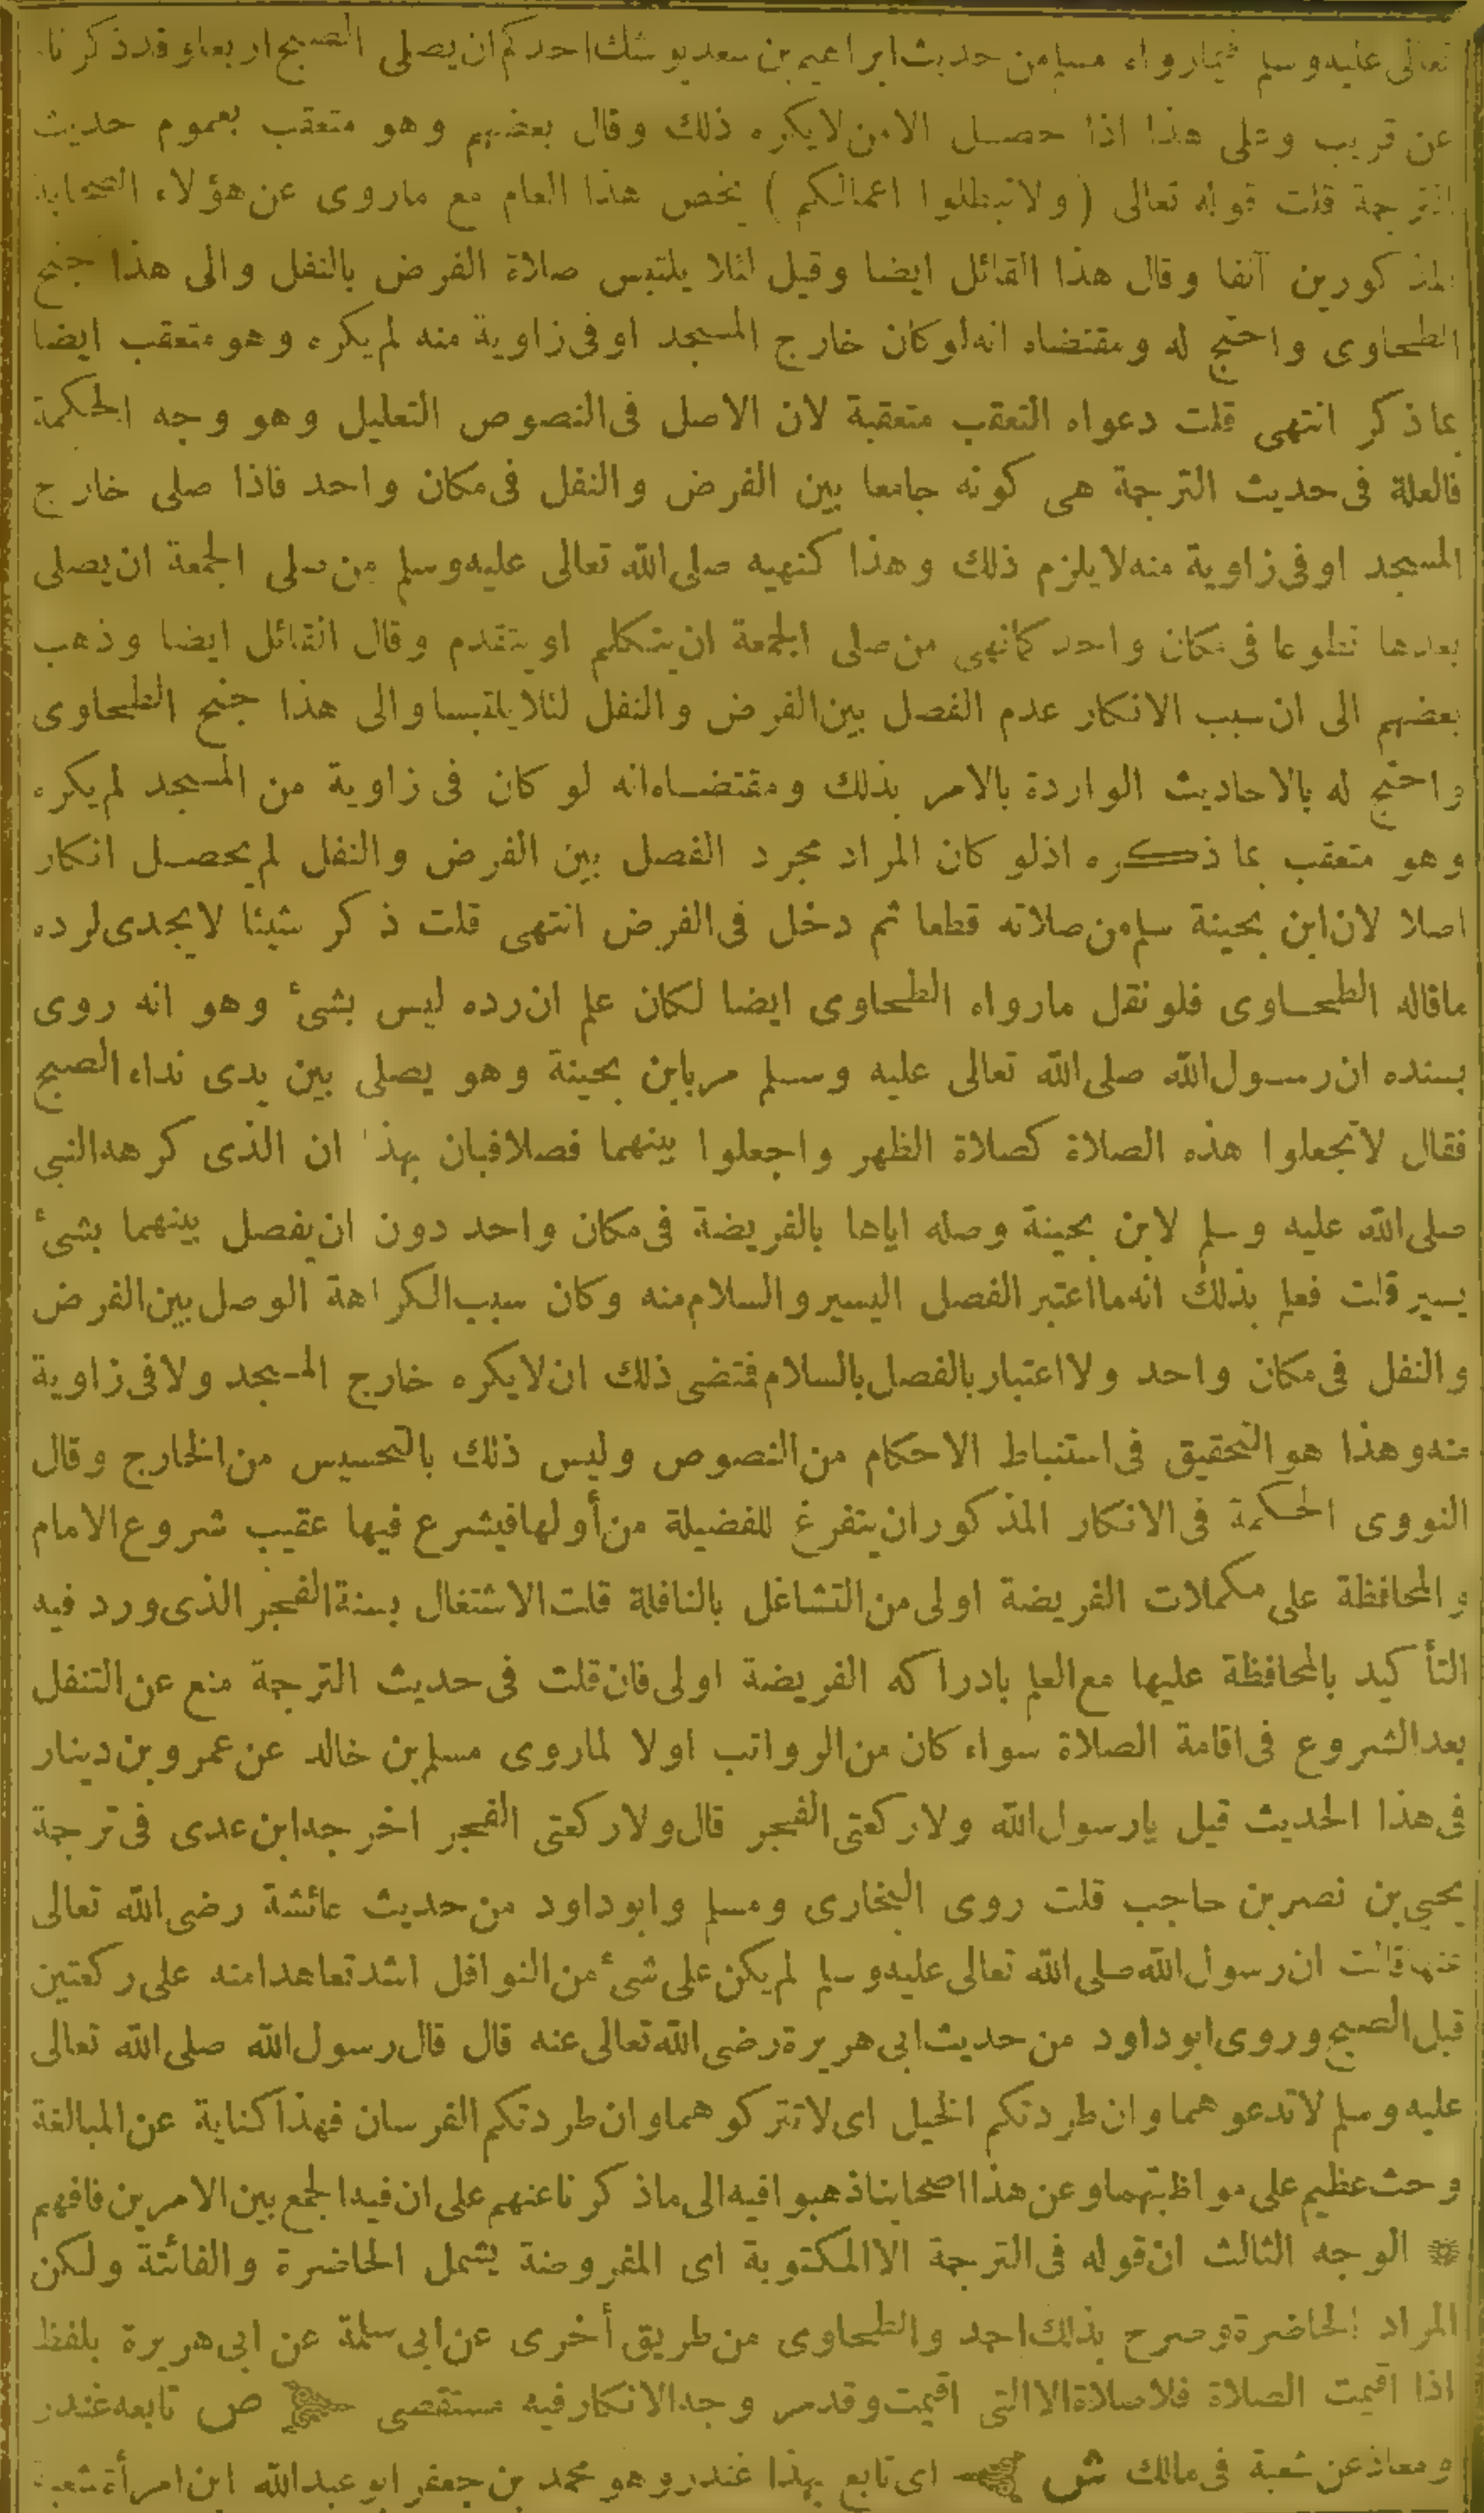 تعالى عليه وسلم فيما رواه مسلم من حديث ابراهيم بن سعد يوشك احدكم ان يصلى الصبح اربعا وقد ذكرنا
عن قريب وعلى هذا اذا حصل الامن لايكره ذلك وقال بعضهم وهو متعقب بعموم حديث
الترجمة قلت قوله تعالى (ولاتبطلوا اعمالكم) يخص هذا العام مع ماروى عن هؤلاء الصحابة
المذكورين آنفا وقال هذا القائل ايضا وقيل لئلا يلتبس صلاة الفرض بالنفل والى هذا جنح
الطحاوى واحتج له ومقتضاه انه لوكان خارج المسجد اوفى زاوية منه لم يكره وهو متعقب ايضا
بما ذكر انتهى قلت دعواه التعقب متعقبة لان الاصل فى النصوص التعليل وهو وجه الحكمة
فالعلة فى حديث الترجمة هى كونه جامعا بين الفرض والنفل فى مكان واحد فاذا صلى خارج
المسجد اوفى زاوية منه لايلزم ذلك وهذا كنهيه صلى الله تعالى عليه وسلم من صلى الجمعة ان يصلى
بعدها تطوعا فى مكان واحد كمانهى من صلى الجمعة ان يتكلم او يتقدم وقال القائل ايضا وذهب
بعضهم الى ان سبب الانكار عدم الفصل بين الفرض والنفل لئلا يلتبسا والى هذا جنح الطحاوى
واحتج له بالاحاديث الواردة بالامر بذلك ومقتضاه انه لو كان فى زاوية من المسجد لم يكره
وهو متعقب بما ذكره اذلو كان المراد مجرد الفصل بين الفرض والنفل لم يحصل انكار
اصلا لان ابن بحينة سلم من صلاته قطعا ثم دخل فى الفرض انتهى قلت ذكر شيئا لايجدى لرده
ماقاله الطحاوى فلو نقل مارواه الطحاوى ايضا لكان علم ان رده ليس بشئ وهو انه روى
بسنده ان رسول الله صلى الله تعالى عليه وسلم مر بابن بحينة وهو يصلى بين يدى نداء الصبح
فقال لاتجعلوا هذه الصلاة كصلاة الظهر واجعلوا بينهما فصلا فبان بهذا ان الذى كرهه النبى
صلى الله عليه وسلم لابن بحينة وصله اياها بالفريضة فى مكان واحد دون ان يفصل بينهما بشئ
يسير قلت فعلم بذلك انه مااعتبر الفصل اليسير والسلام منه وكان سبب الكراهة الوصل بين الفرض
والنفل فى مكان واحد ولااعتبار بالفصل بالسلام فتضى ذلك ان لايكره خارج المسجد ولافى زاوية
منه وهذا هو التحقيق فى استنباط الاحكام من النصوص وليس ذلك بالتحسيس من الخارج وقال
النووى الحكمة فى الانكار المذكور ان يتفرغ للفضيلة من أولها فيشرع فيها عقيب شروع الامام
والمحافظة على مكملات الفريضة اولى من التشاغل بالنافلة قلت الاشتغال بسنة الفجر الذى ورد فيه
التأكيد بالمحافظة عليها مع العلم بادراكه الفريضة اولى فان قلت فى حديث الترجمة منع عن التنفل
بعد الشروع فى اقامة الصلاة سواء كان من الرواتب اولا لماروى مسلم بن خالد عن عمرو بن دينار
فى هذا الحديث قيل يارسول الله ولاركعتى الفجر قال ولاركعتى الفجر اخرجه ابن عدى فى ترجمة
يحيى بن نصر بن حاجب قلت روى البخارى ومسلم وابوداود من حديث عائشة رضى الله تعالى
عنها قالت ان رسول الله صلى الله تعالى عليه وسلم لم يكن على شئ من النوافل اشد تعاهدا منه على ركعتين
قبل الصبح وروى ابوداود من حديث ابى هريرة رضى الله تعالى عنه قال قال رسول الله صلى الله تعالى
عليه وسلم لاتدعوهما وان طردتكم الخيل اى لاتتركوهما وان طردتكم الفرسان فهذا كناية عن المبالغة
وحث عظيم على مواظبتهما وعن هذا اصحابنا ذهبوا فيه الى ماذكرنا عنهم على ان فيه الجمع بين الامرين فافهم
❊ الوجه الثالث ان قوله فى الترجمة الا المكتوبة اى المفروضة يشمل الحاضرة والفائتة ولكن
المراد الحاضرة وصرح بذلك احمد والطحاوى من طريق أخرى عن ابى سلمة عن ابى هريرة بلفظ
اذا اقيمت الصلاة فلاصلاة الا التى اقيمت وقدمر وجه الانكار فيه مستقصى ص تابعه غندر
ومعاذ عن شعبة فى مالك ش اى تابع بهذا غندر وهو محمد بن جعفر ابو عبدالله ابن امرأة شعبة